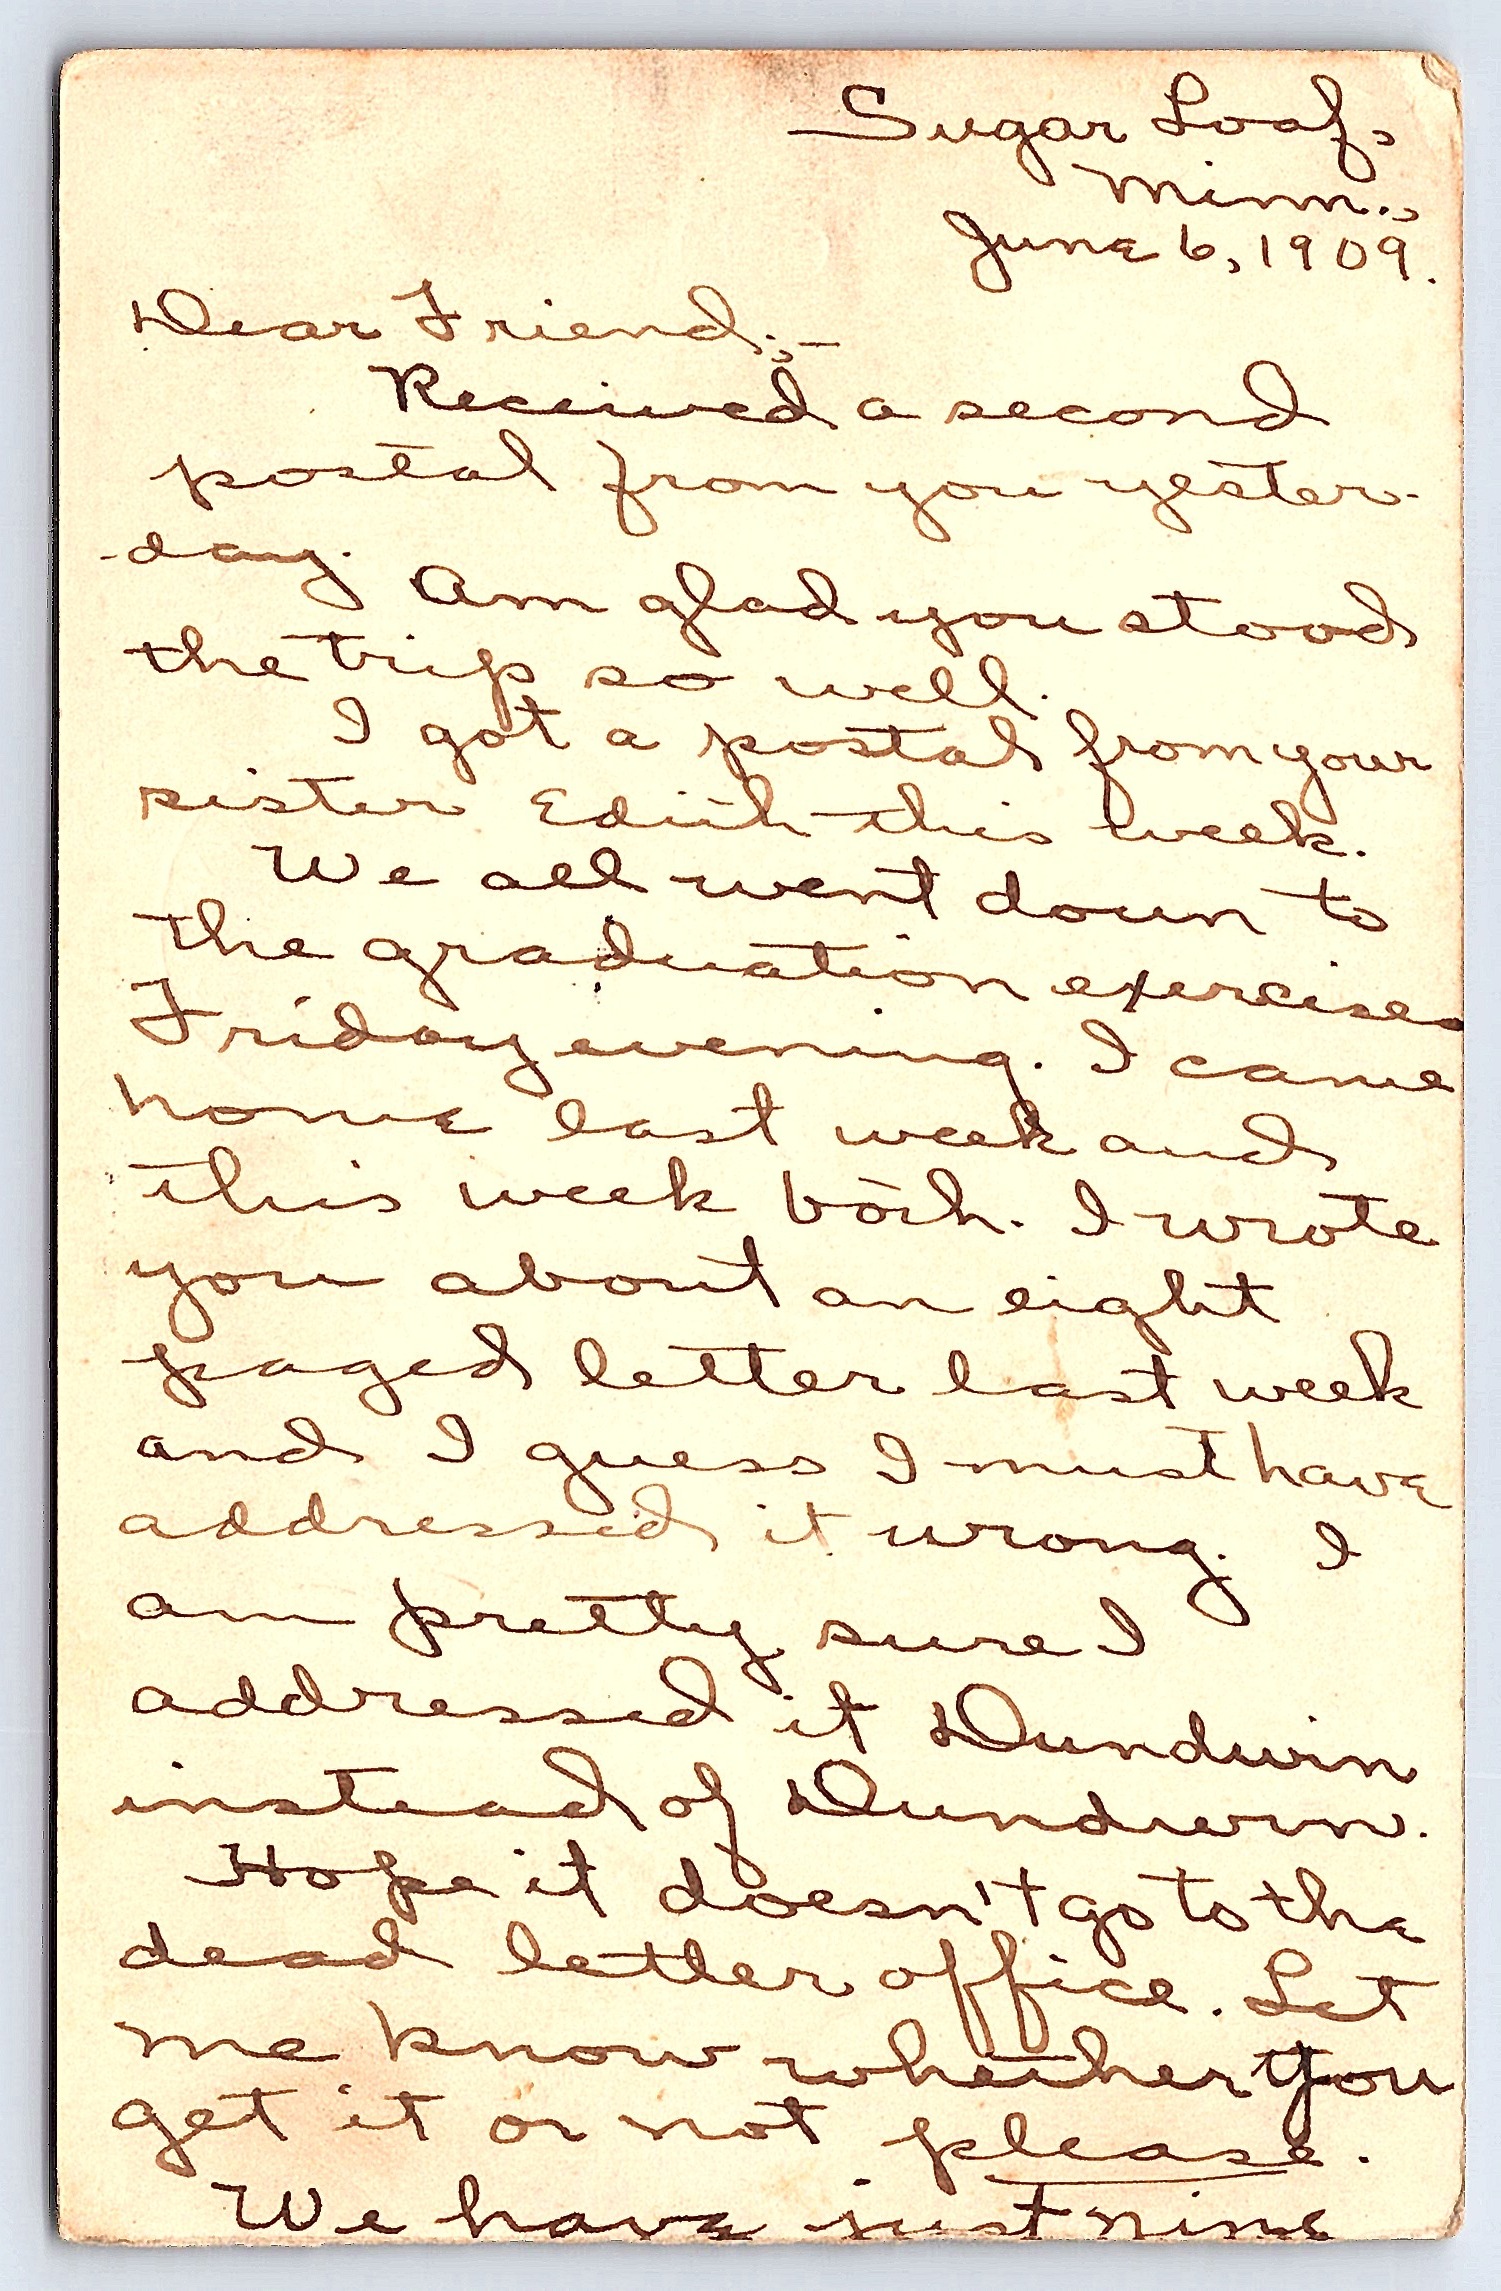 Sugar Loaf,
Minn.,
June 6, 1909.
Dear Friend:,-
Received a second
postal from you yester-
-day. Am glad you stood
the trip so well.
I got a postal from your
sister Edith this week.
We all went down to
the graduation exercises
Friday evening. I came
home last week and
this week both. I wrote
you about an eight
paged letter last week
and I guess I must have
addressed it wrong. I
am pretty sure I
addressed it Dundwin
instead of Dundurn.
Hope it doesn't go to the
dead letter office. Let
me know whether you
get it or not please.
We have just nine